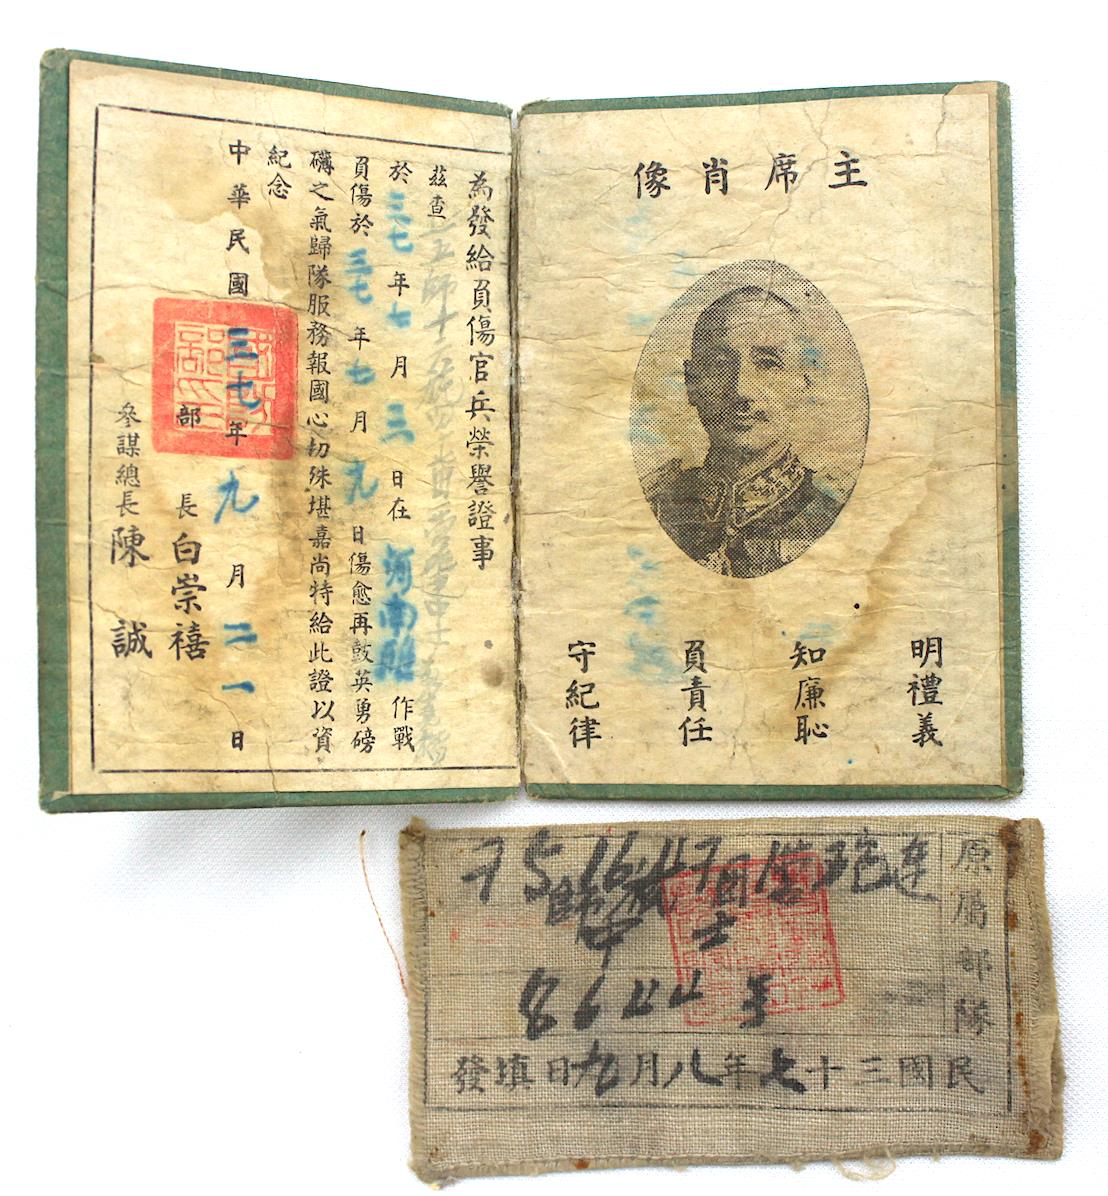 主席肖像
明禮義
知廉恥
負責任
守紀律
為發給負傷官兵榮譽證事
茲查
於三七年七月三日在河南睢作戰
負傷於三七年七月九日傷愈再鼓英勇磅
礴之氣歸隊服務報國心切殊堪嘉尚特給此證以資
紀念
中華民國三七年九月二一日
部長白崇禧
參謀總長陳誠
原屬部隊
75師16旅47团炮连
中士
8644号
民國三十七年八月九日填發